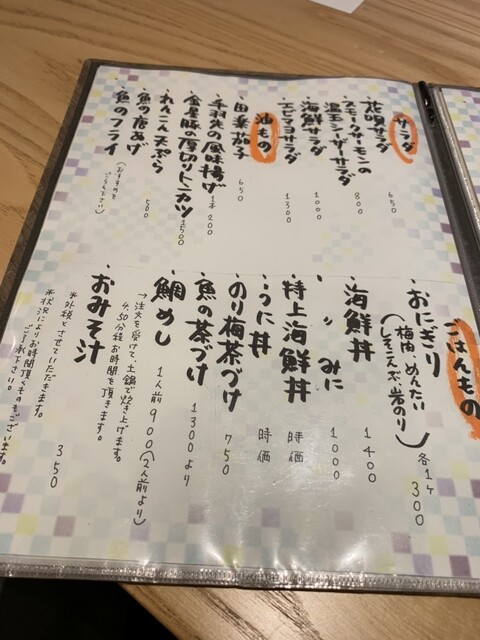 サラダ
・花咲サダ 650
・スモークサーモンの
温玉シーザーサラダ 800
・海鮮サラダ 1000
・エビマヨサラダ 1300
油もの
・田楽茄子 650
・手羽先の風味揚げ 1本 200
・金星豚の厚切りトンカツ 1500
・れんこん天ぷら 500
・魚の唐あげ
・魚のフライ
(おすすめを
ごらん下さい)
ごはんもの
・おにぎり 各1ヶ 300
(梅肉、めんたい
しそこんぶ、岩のり)
・海鮮丼 1400
・〃 みに 1000
・特上海鮮丼 時価
・うに丼 時価
・のり梅茶づけ 750
・魚の茶づけ 1300より
・鯛めし 1人前 900(2人前より)
→注文を受けて、土鍋で炊き上げます。
4.50分程お時間を頂きます。
・おみそ汁 350
※外税とさせていただきます。
※状況によりお時間頂くものもございます。
ご了承下さい。